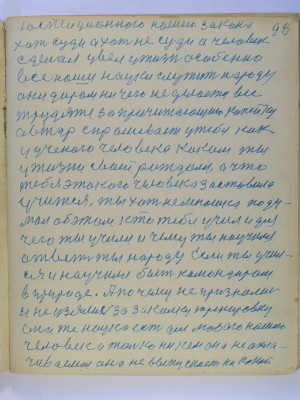 93
хот суди а хот не суди а человек
сделал увел у жизн особенно
все наши науки служит народу
они даром ни чего не делает все
трудятся за причитающию копейку
автар спрашивает у тебя как
у ученого человека каком ты
у жизни своей рождался, а что
тебя этакого человека заставила
учится, ты хот немножка поду-
мал об этом кто тебя учил и для
чего ты учили и чему ты научил
ответ ты народу если ты учил-
ся и научилс быт командаром
в природе. А почему не признали
и не узяли за закалку тренировку
она же наука ест для любого нашего
человека и только ни кем она не опла-
чиваемая она не выпускает на какой